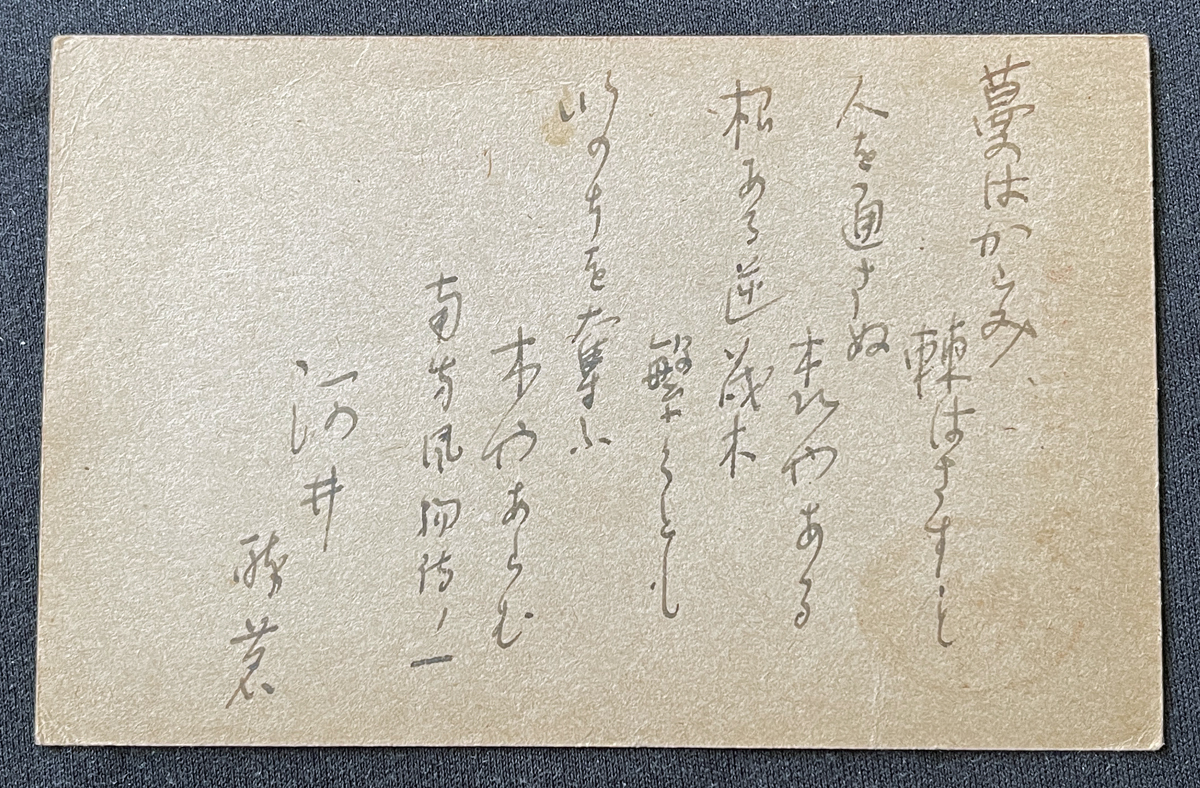 蔓はからみ
棘はさすとも
人を通さぬ
木やある
根ある逆茂木
繁くとも
いのちを奪ふ
木やあらむ
南方風物詩ノ一
河井
酔茗